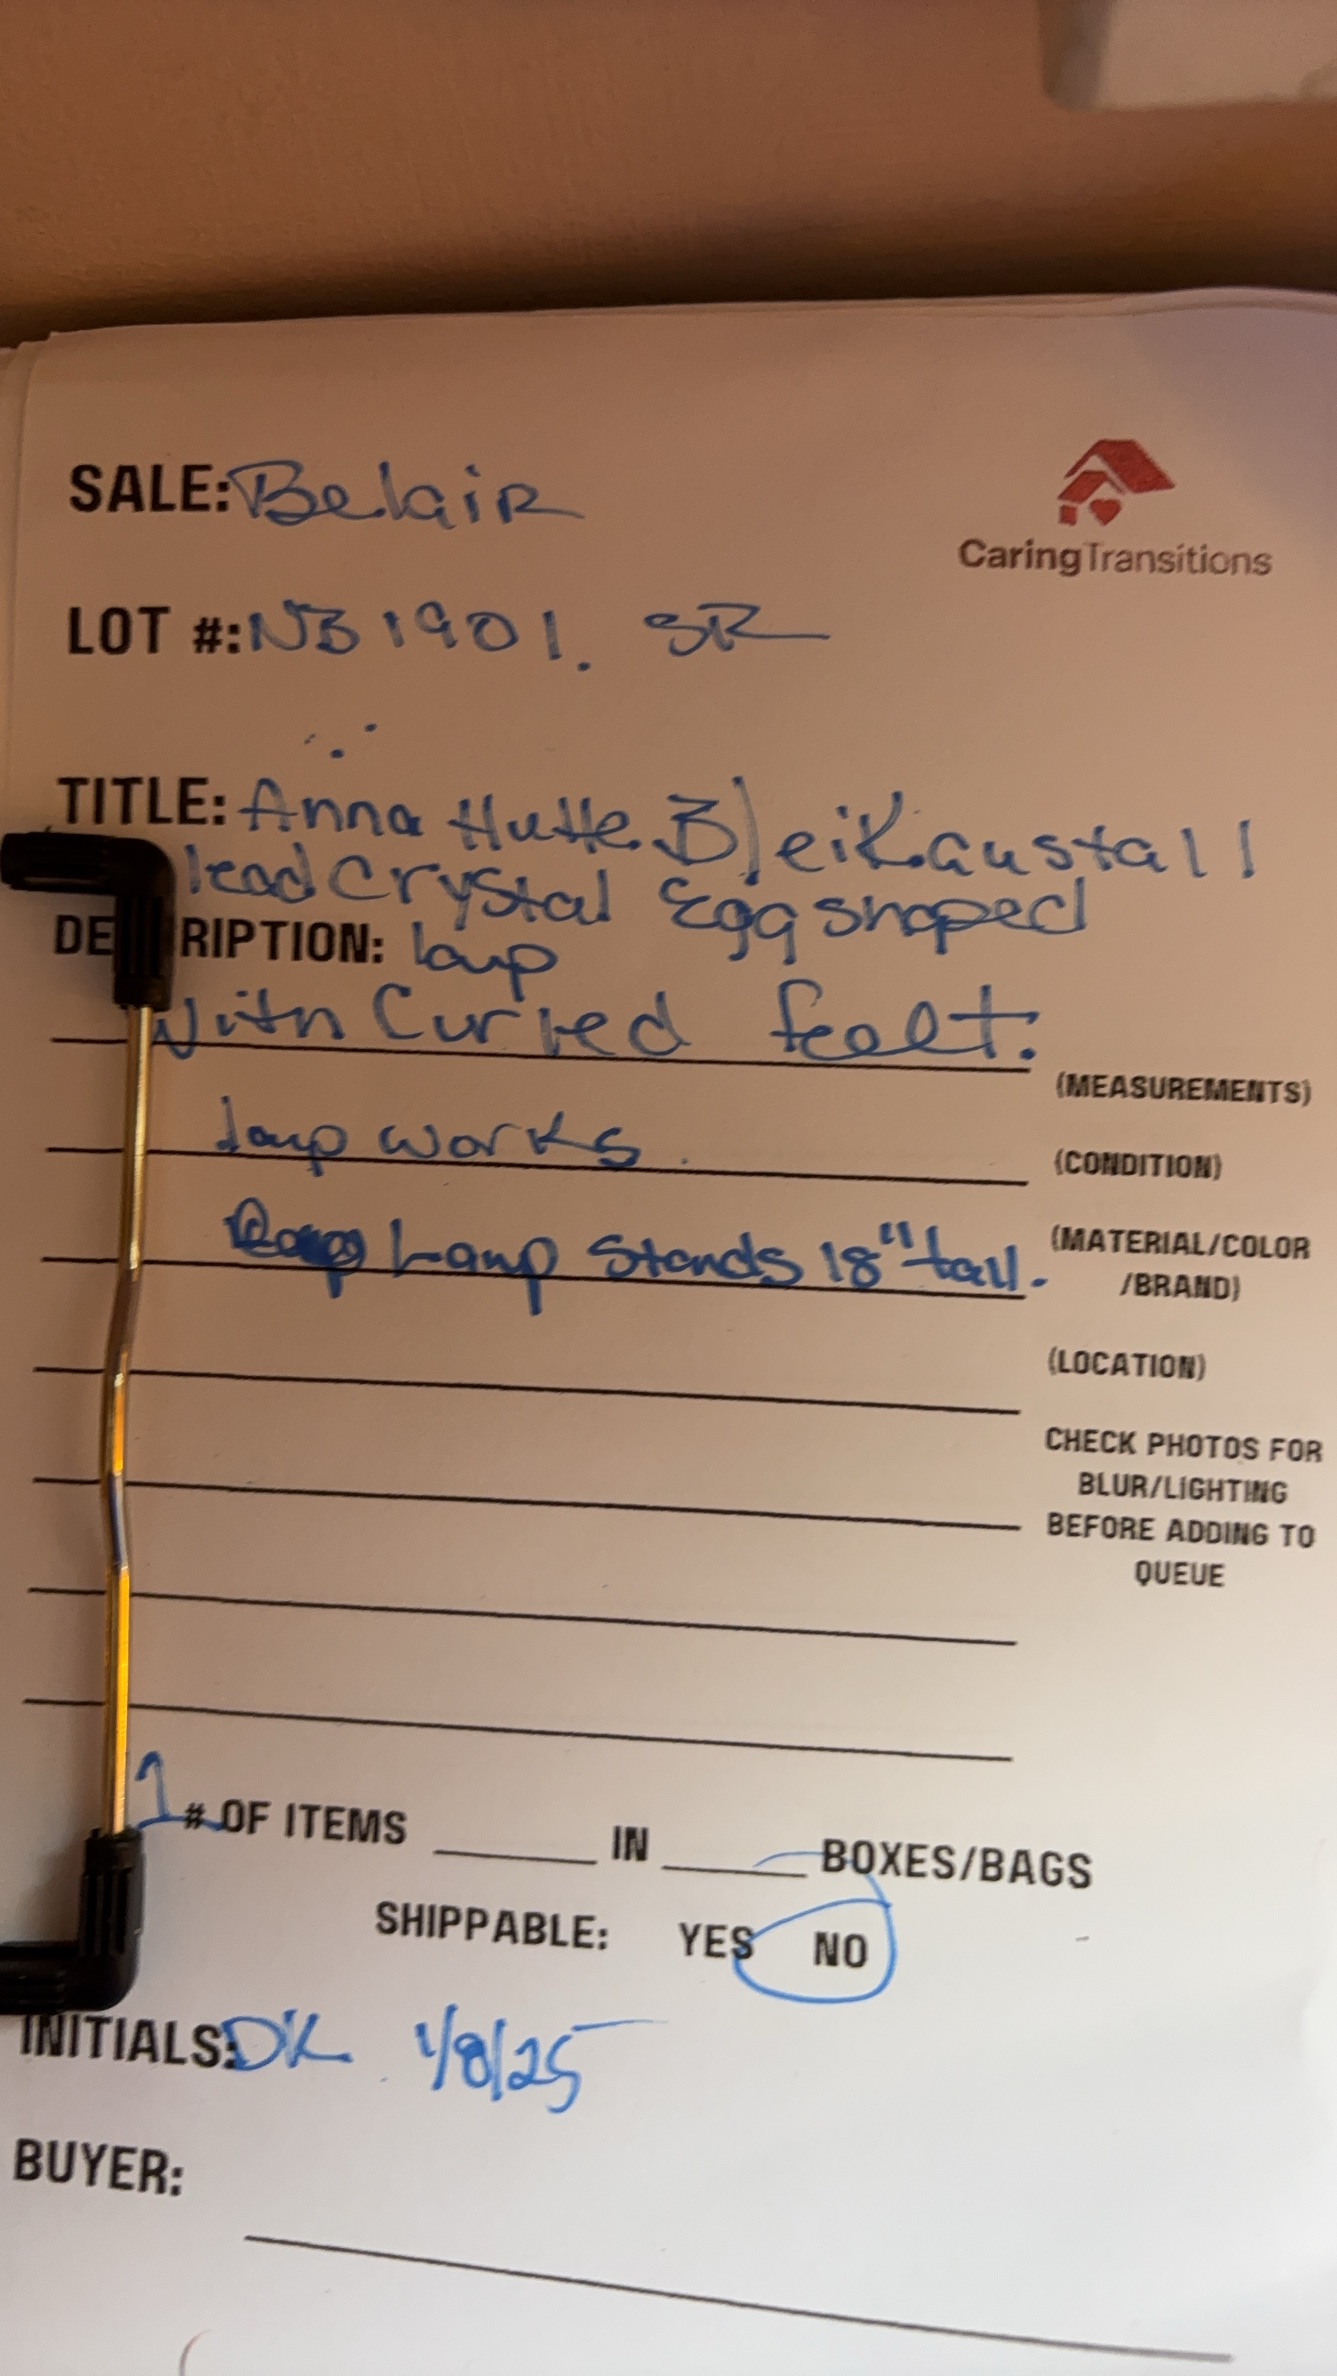 SALE: Belair
CaringTransitions
LOT #: NB 1901. SR
TITLE: Anna Hutte Bleikaustall
lead Crystal Egg shaped
DE RIPTION: lamp
With Curved feet.
(MEASUREMENTS)
lamp works.
(CONDITION)
Lamp Stands 18" tall.
(MATERIAL/COLOR
/BRAND)
(LOCATION)
CHECK PHOTOS FOR
BLUR/LIGHTING
BEFORE ADDING TO
QUEUE
1 # OF ITEMS IN BOXES/BAGS
SHIPPABLE: YES NO
INITIALS: DK 1/8/25
BUYER: